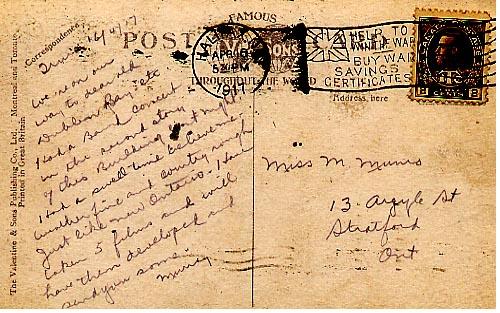 The Valentine & Sons Publishing Co., Ltd., Montreal and Toronto
Printed in Great Britain.
Correspondence
FAMOUS
POST
THROUGHOUT THE WORLD
HALIFAX
APR 5
PM
1917
HELP TO
WIN THE WAR
BUY WAR
SAVINGS
CERTIFICATES
Address here
4/17
We are on our
way to dear old
Had a Band Concert
in the second story
of this Building last night
Had a swell time
another fine and country
Just like new Ontario. Have
taken 5 films and will
have them developed and
send you some.
Miss M. Munro
13 Argyle St
Stratford
Ont